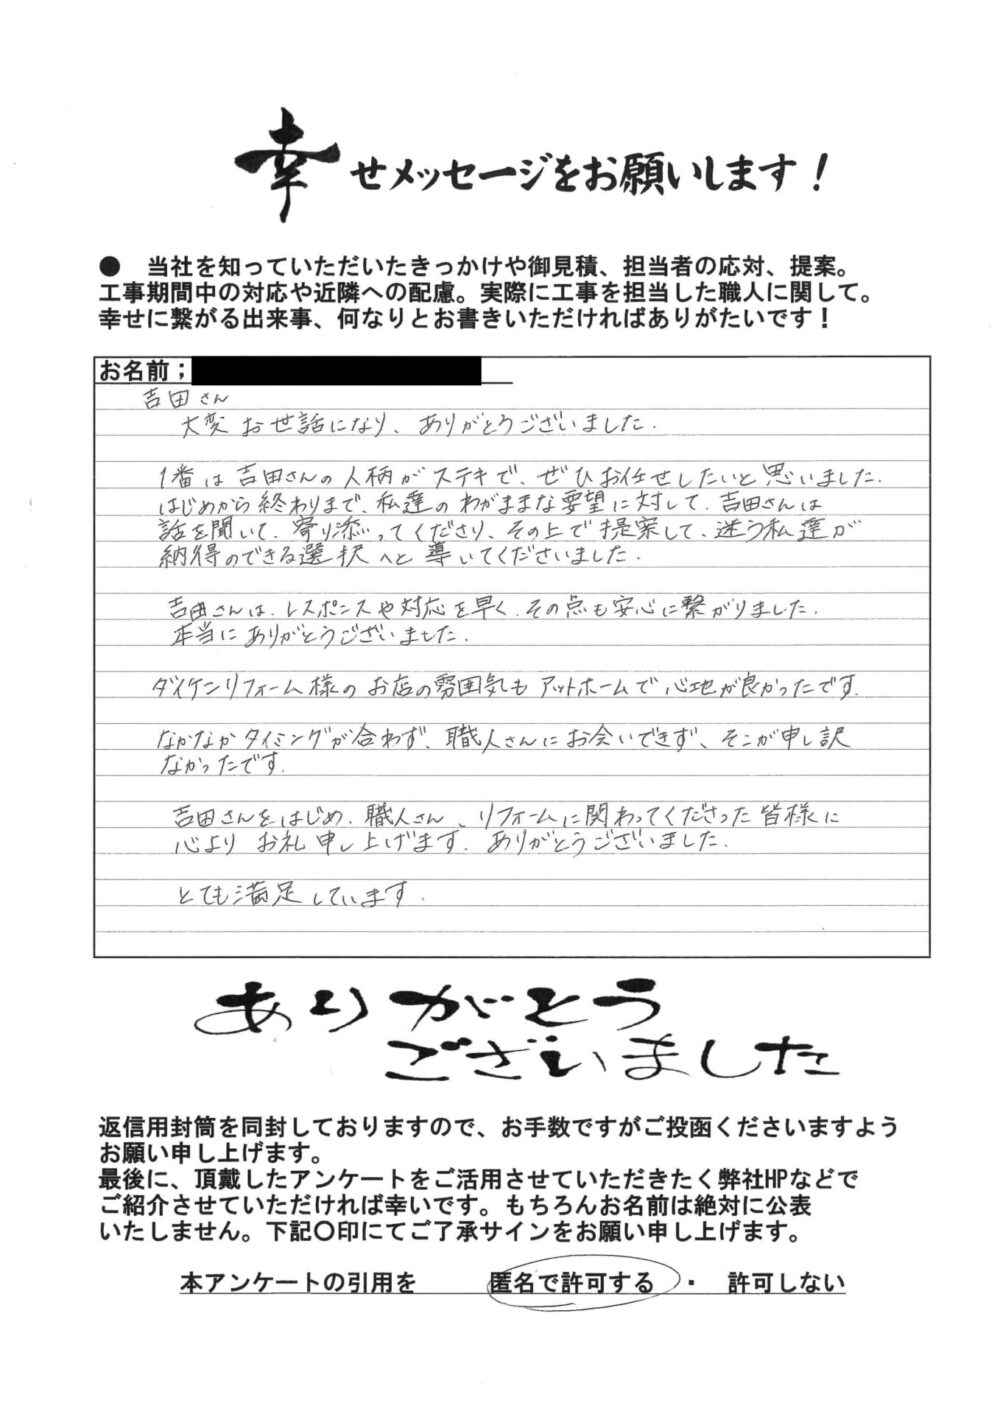 幸せメッセージをお願いします！
●　当社を知っていただいたきっかけや御見積、担当者の応対、提案。
工事期間中の対応や近隣への配慮。実際に工事を担当した職人に関して。
幸せに繋がる出来事、何なりとお書きいただければありがたいです！
お名前；
吉田さん
大変お世話になり、ありがとうございました.
1番は吉田さんの人柄がステキで、ぜひお任せしたいと思いました.
はじめから終わりまで、私達のわがままな要望に対して、吉田さんは
話を聞いて、寄り添ってくださり、その上で提案して、迷う私達が
納得のできる選択へと導いてくださいました.
吉田さんは、レスポンスや対応を早く、その点も安心に繋がりました.
本当にありがとうございました.
ダイケンリフォーム様のお店の雰囲気もアットホームで心地が良かったです.
なかなかタイミングが合わず、職人さんにお会いできず、そこが申し訳
なかったです.
吉田さんをはじめ、職人さん、リフォームに関わってくださった皆様に
心よりお礼申し上げます. ありがとうございました.
とても満足しています.
ありがとう
ございました
返信用封筒を同封しておりますので、お手数ですがご投函くださいますよう
お願い申し上げます。
最後に、頂戴したアンケートをご活用させていただきたく弊社HPなどで
ご紹介させていただければ幸いです。もちろんお名前は絶対に公表
いたしません。下記〇印にてご了承サインをお願い申し上げます。
本アンケートの引用を　　匿名で許可する ・ 許可しない